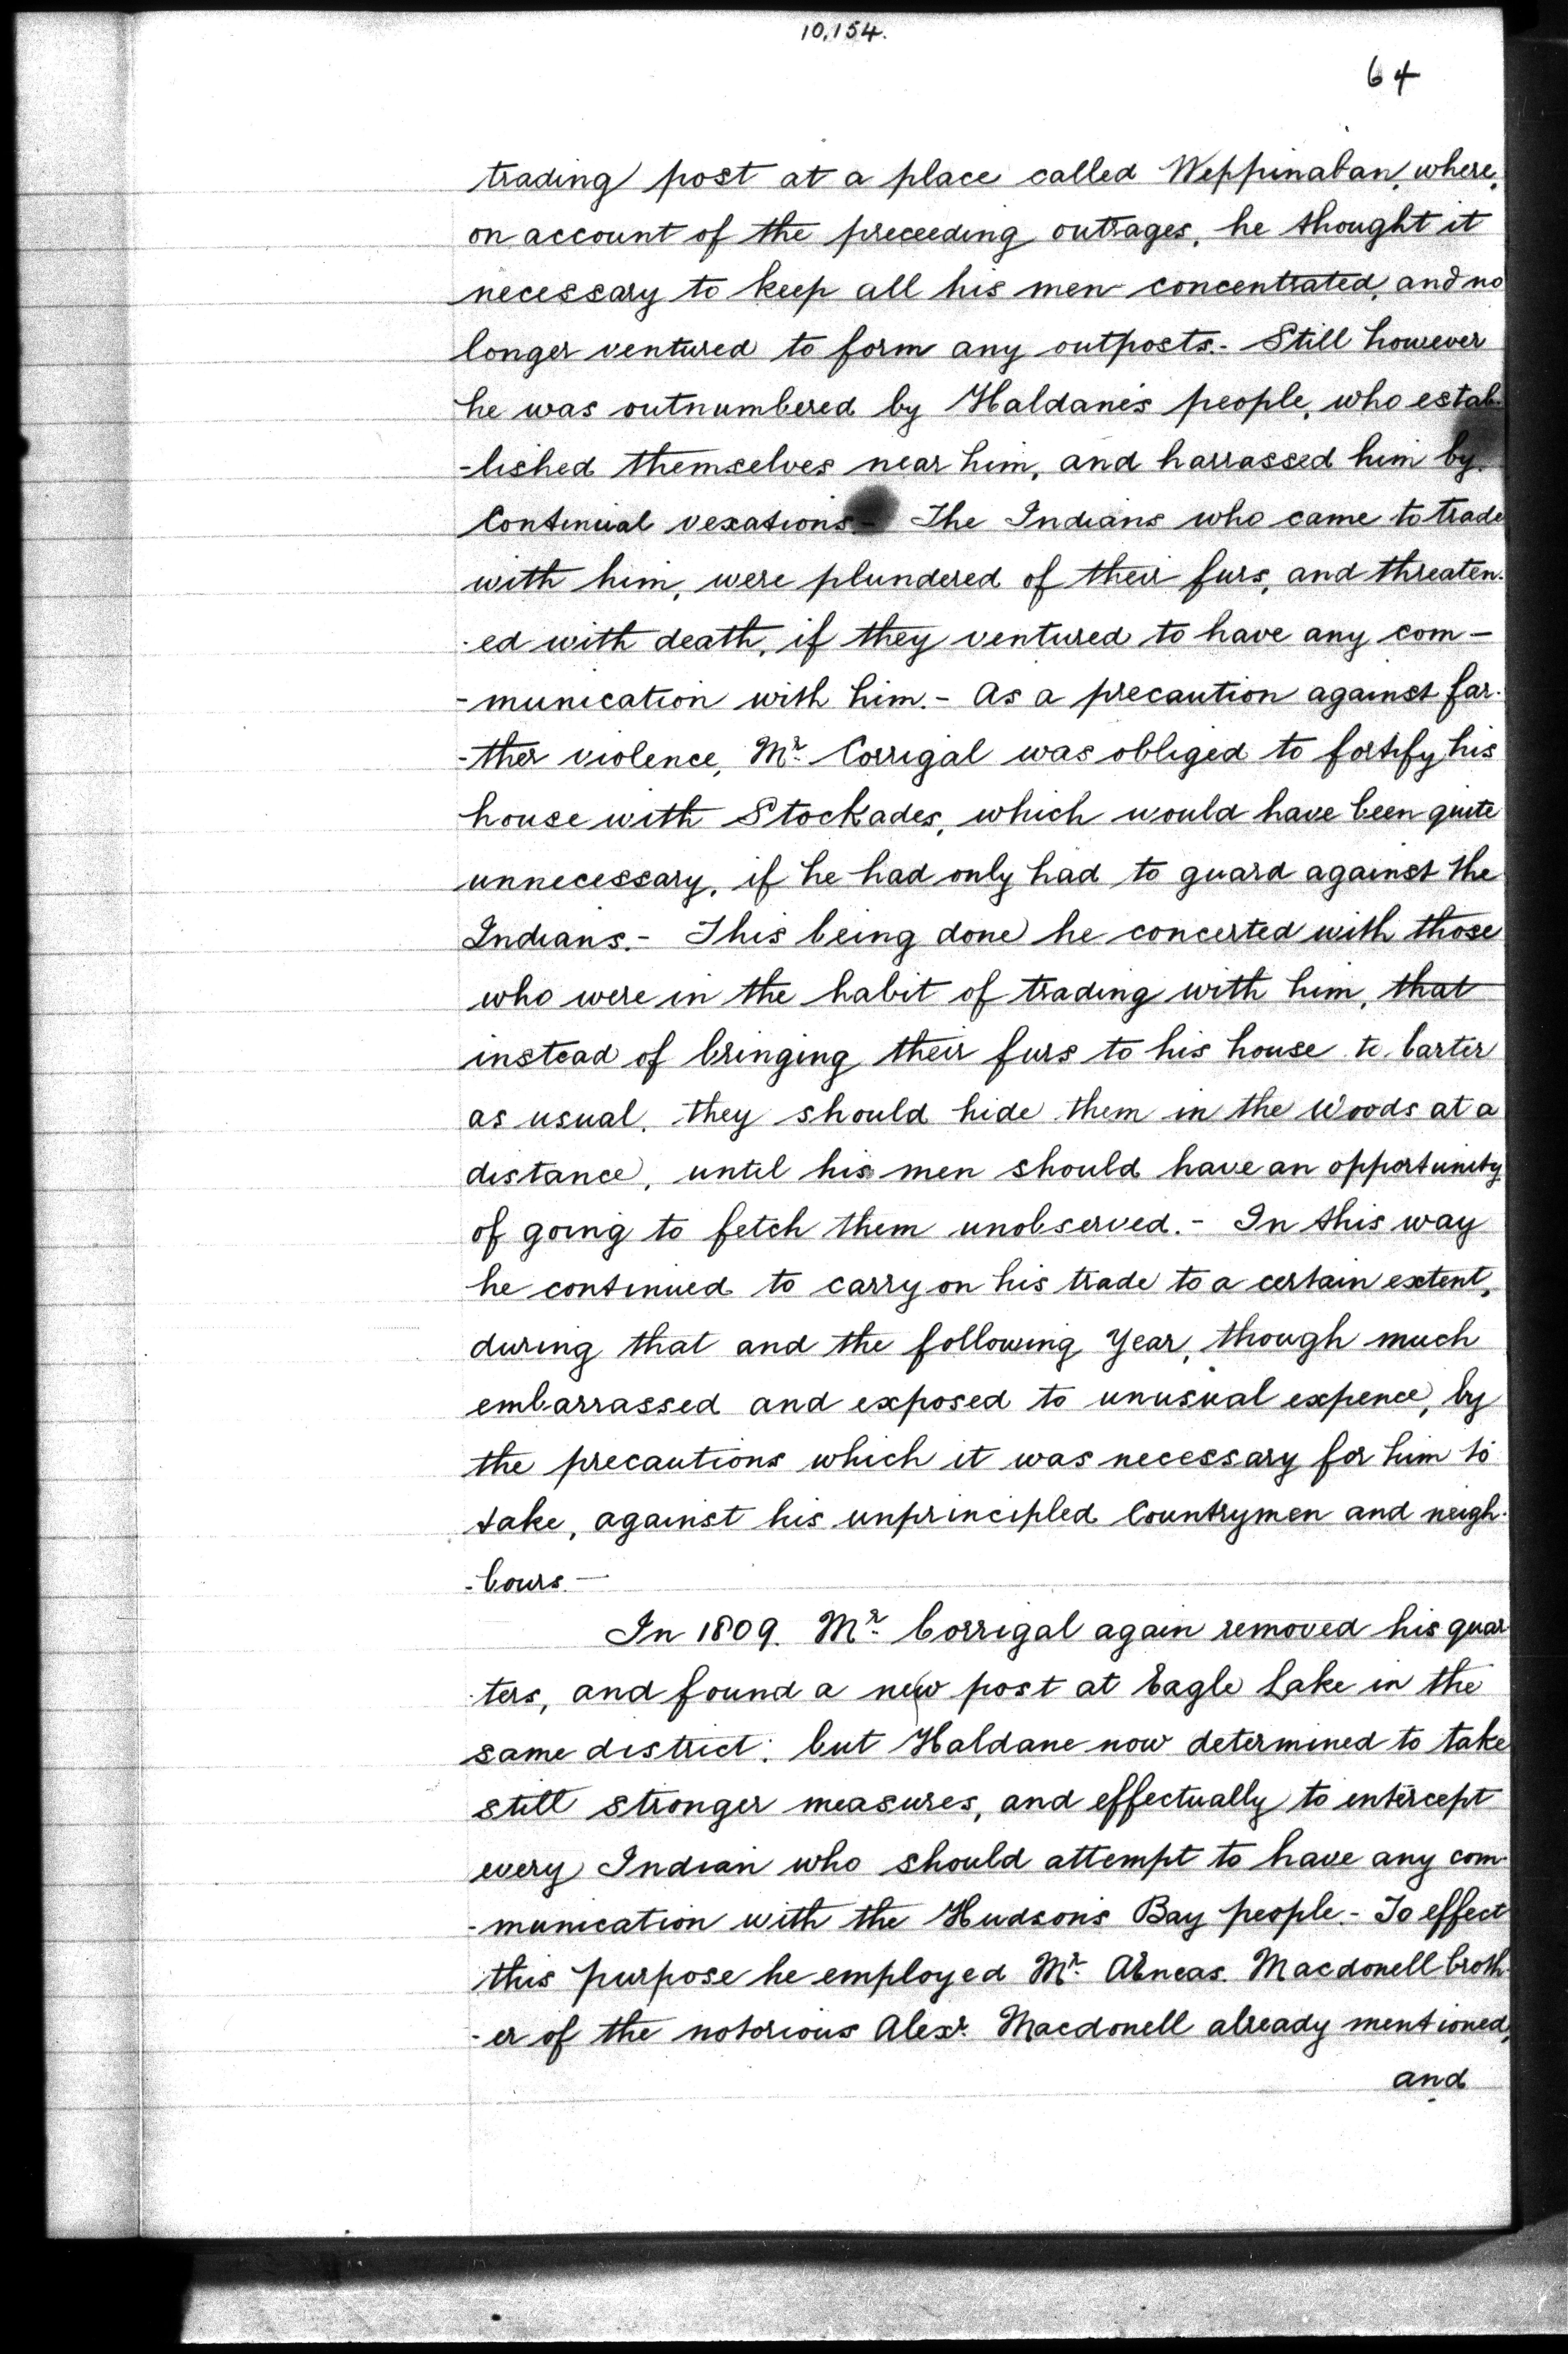 10,154.
64
trading post at a place called Weppinaban, where,
on account of the preceeding outrages, he thought it
necessary to keep all his men concentrated, and no
longer ventured to form any outposts.- Still however
he was outnumbered by Haldane's people, who estab-
-lished themselves near him, and harrassed him by
Continual vexations.- The Indians who came to trade
with him, were plundered of their furs, and threaten-
-ed with death, if they ventured to have any com-
-munication with him.- As a precaution against far-
-ther violence, Mr. Corrigal was obliged to fortify his
house with Stockades, which would have been quite
unnecessary, if he had only had to guard against the
Indians.- This being done he concerted with those
who were in the habit of trading with him, that
instead of bringing their furs to his house to barter
as usual, they should hide them in the Woods at a
distance, until his men should have an opportunity
of going to fetch them unobserved.- In this way
he continued to carry on his trade to a certain extent,
during that and the following Year, though much
embarrassed and exposed to unusual expence, by
the precautions which it was necessary for him to
take, against his unprincipled Countrymen and neigh-
-bours.-
In 1809. Mr. Corrigal again removed his quar-
-ters, and found a new post at Eagle Lake in the
same district: but Haldane now determined to take
still stronger measures, and effectually to intercept
every Indian who should attempt to have any com-
-munication with the Hudson's Bay people.- To effect
this purpose he employed Mr. AEneas Macdonell broth-
-er of the notorious Alexr. Macdonell already mentioned,
and